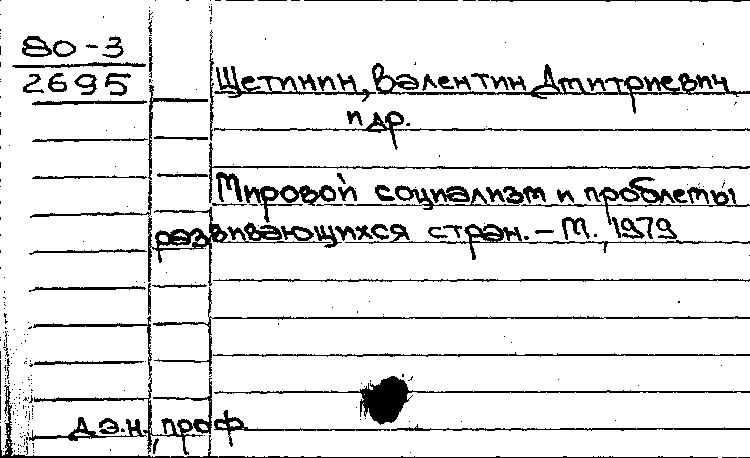 80-3
2695
Щетинин, Валентин Дмитриевич
и др.
Мировой социализм и проблемы
развивающихся стран. - М., 1979
д.э.н., проф.